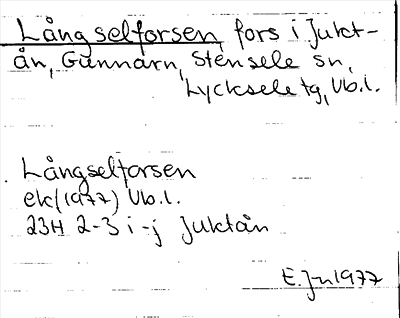 Långselforsen fors i Jukt-
ån, Gunnarn, Stensele sn,
Lycksele tg, Vb.l.
Långselforsen
ek(1977) Vb.l.
23H 2-3 i-j Juktån
E.Jn 1977